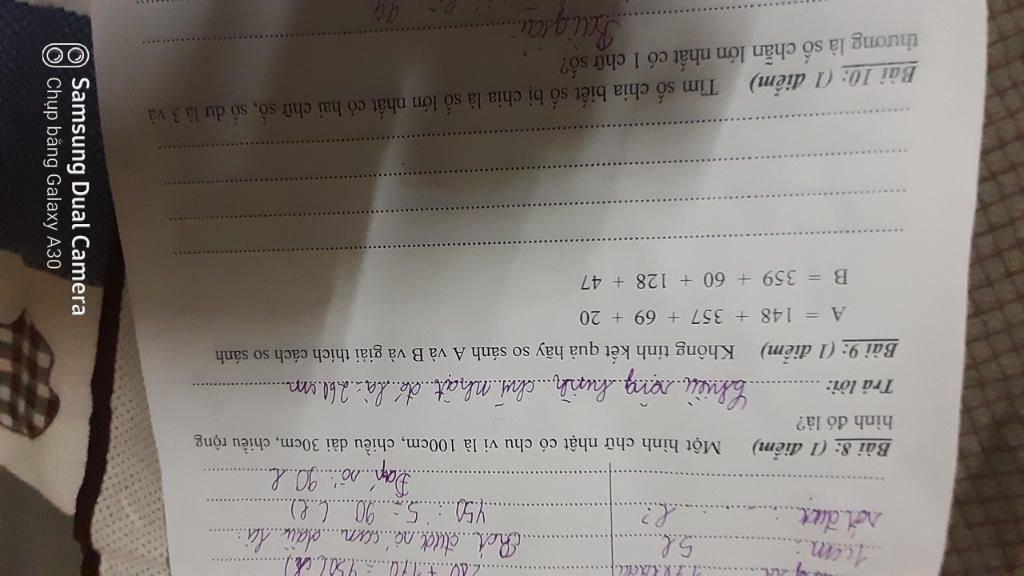 280 + 170 = 450 (l)
1 can: 5l
Rót được số can dầu là:
rót được l?
450 : 5 = 90 (l)
Đáp số: 90 l
Bài 8: (1 điểm) Một hình chữ nhật có chu vi là 100cm, chiều dài 30cm, chiều rộng
hình đó là?
Trả lời: Chiều rộng hình chữ nhật đó là: 260 cm
Bài 9: (1 điểm) Không tính kết quả hãy so sánh A và B và giải thích cách so sánh
A = 148 + 357 + 69 + 20
B = 359 + 60 + 128 + 47
Bài 10: (1 điểm) Tìm số chia biết số bị chia là số lớn nhất có hai chữ số, số dư là 3 và
thương là số chẵn lớn nhất có 1 chữ số?
Bài giải
Samsung Dual Camera
Chụp bằng Galaxy A30